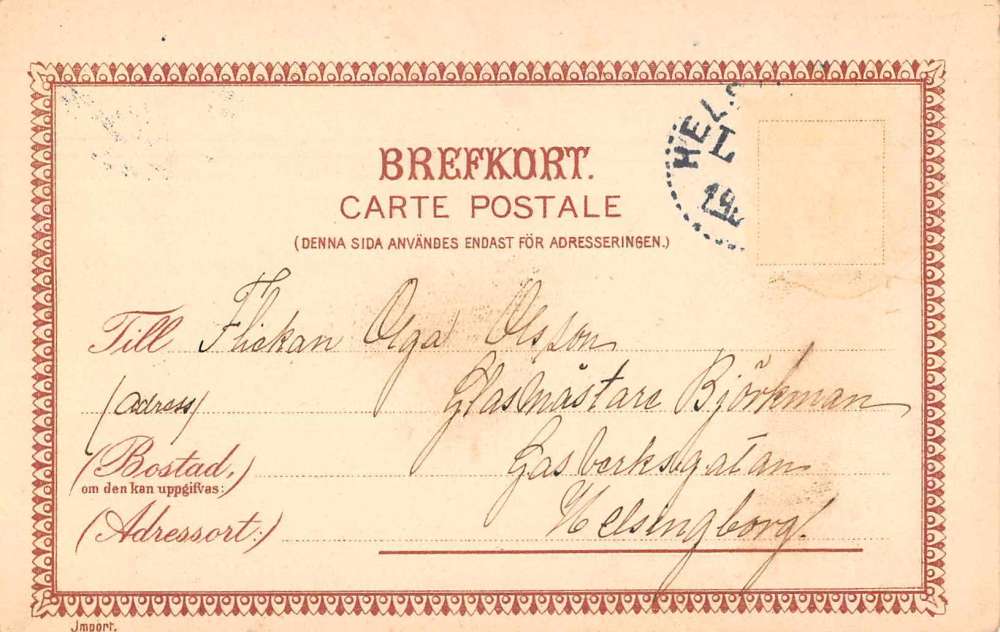 BREFKORT.
CARTE POSTALE
(DENNA SIDA ANVÄNDES ENDAST FÖR ADRESSERINGEN.)
HELS
L
19
Till Flickan Olga Olsson
(adress) Glasmästare Björkman
(Bostad,) Gasverksgatan
om den kan uppgifvas:
(Adressort:) Helsingborg.
Import.